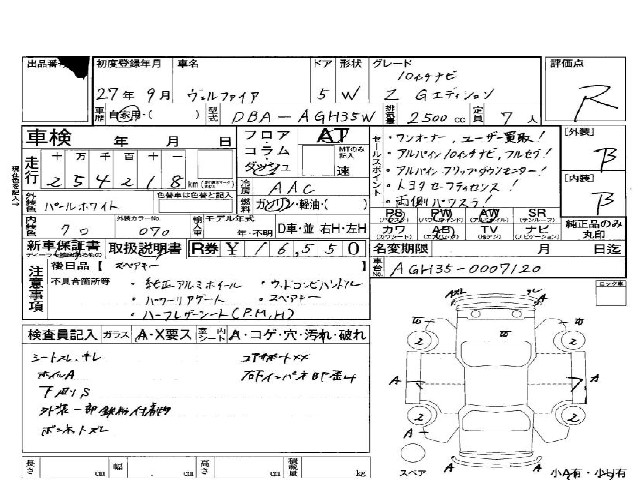 出品番号 初度登録年月 車名 ドア 形状 グレード 評価点
27年 9月 ヴェルファイア 5 W 10インチナビ
Z Gエディション R
車歴 自家用・( ) 型式 DBA-AGH35W 排気量 2500cc 定員 7人
車検 年 月 日
フロア・コラム・ダッシュ AT MTのみ記入 速
走行 十万千百十一 25421.8 km
冷房 AAC
セールスポイント
・ワンオーナー、ユーザー買取!
・アルパイン10インチナビ、フルセグ!
・アルパインフリップダウンモニター!
・トヨタセーフティセンス!
・両側パワスラ!
[外装] B
[内装] B
外装色 パールホワイト 色替車は色替と記入
燃料 ガソリン・軽油・( )
内装色 70 外装カラーNo. 070 輸入車 モデル年式 年・不明 D車・並 右H・左H
PS PW AW SR
カワ AB TV ナビ
純正品のみ丸印
新車保証書 取扱説明書 R券 ¥16,550
名変期限 月 日迄
車台No. AGH35-0007120
後日品 [ スペアキー ]
注意事項 不具合箇所等
・純正アルミホイール ・ウッドコンビハンドル
・パワーリアゲート ・スペアキー
・ハーフレザーシート(P.M.H)
検査員記入 ガラス A・X要ス 室内シート A・コゲ・穴・汚れ・破れ
シートスレ、キレ コアサポートXX
ホイルA
下回りS
外装一部鉄粉付着
ボンネットズレ
スペア
小A有・小U有
長さ cm 幅 cm 高さ cm 積載量 kg